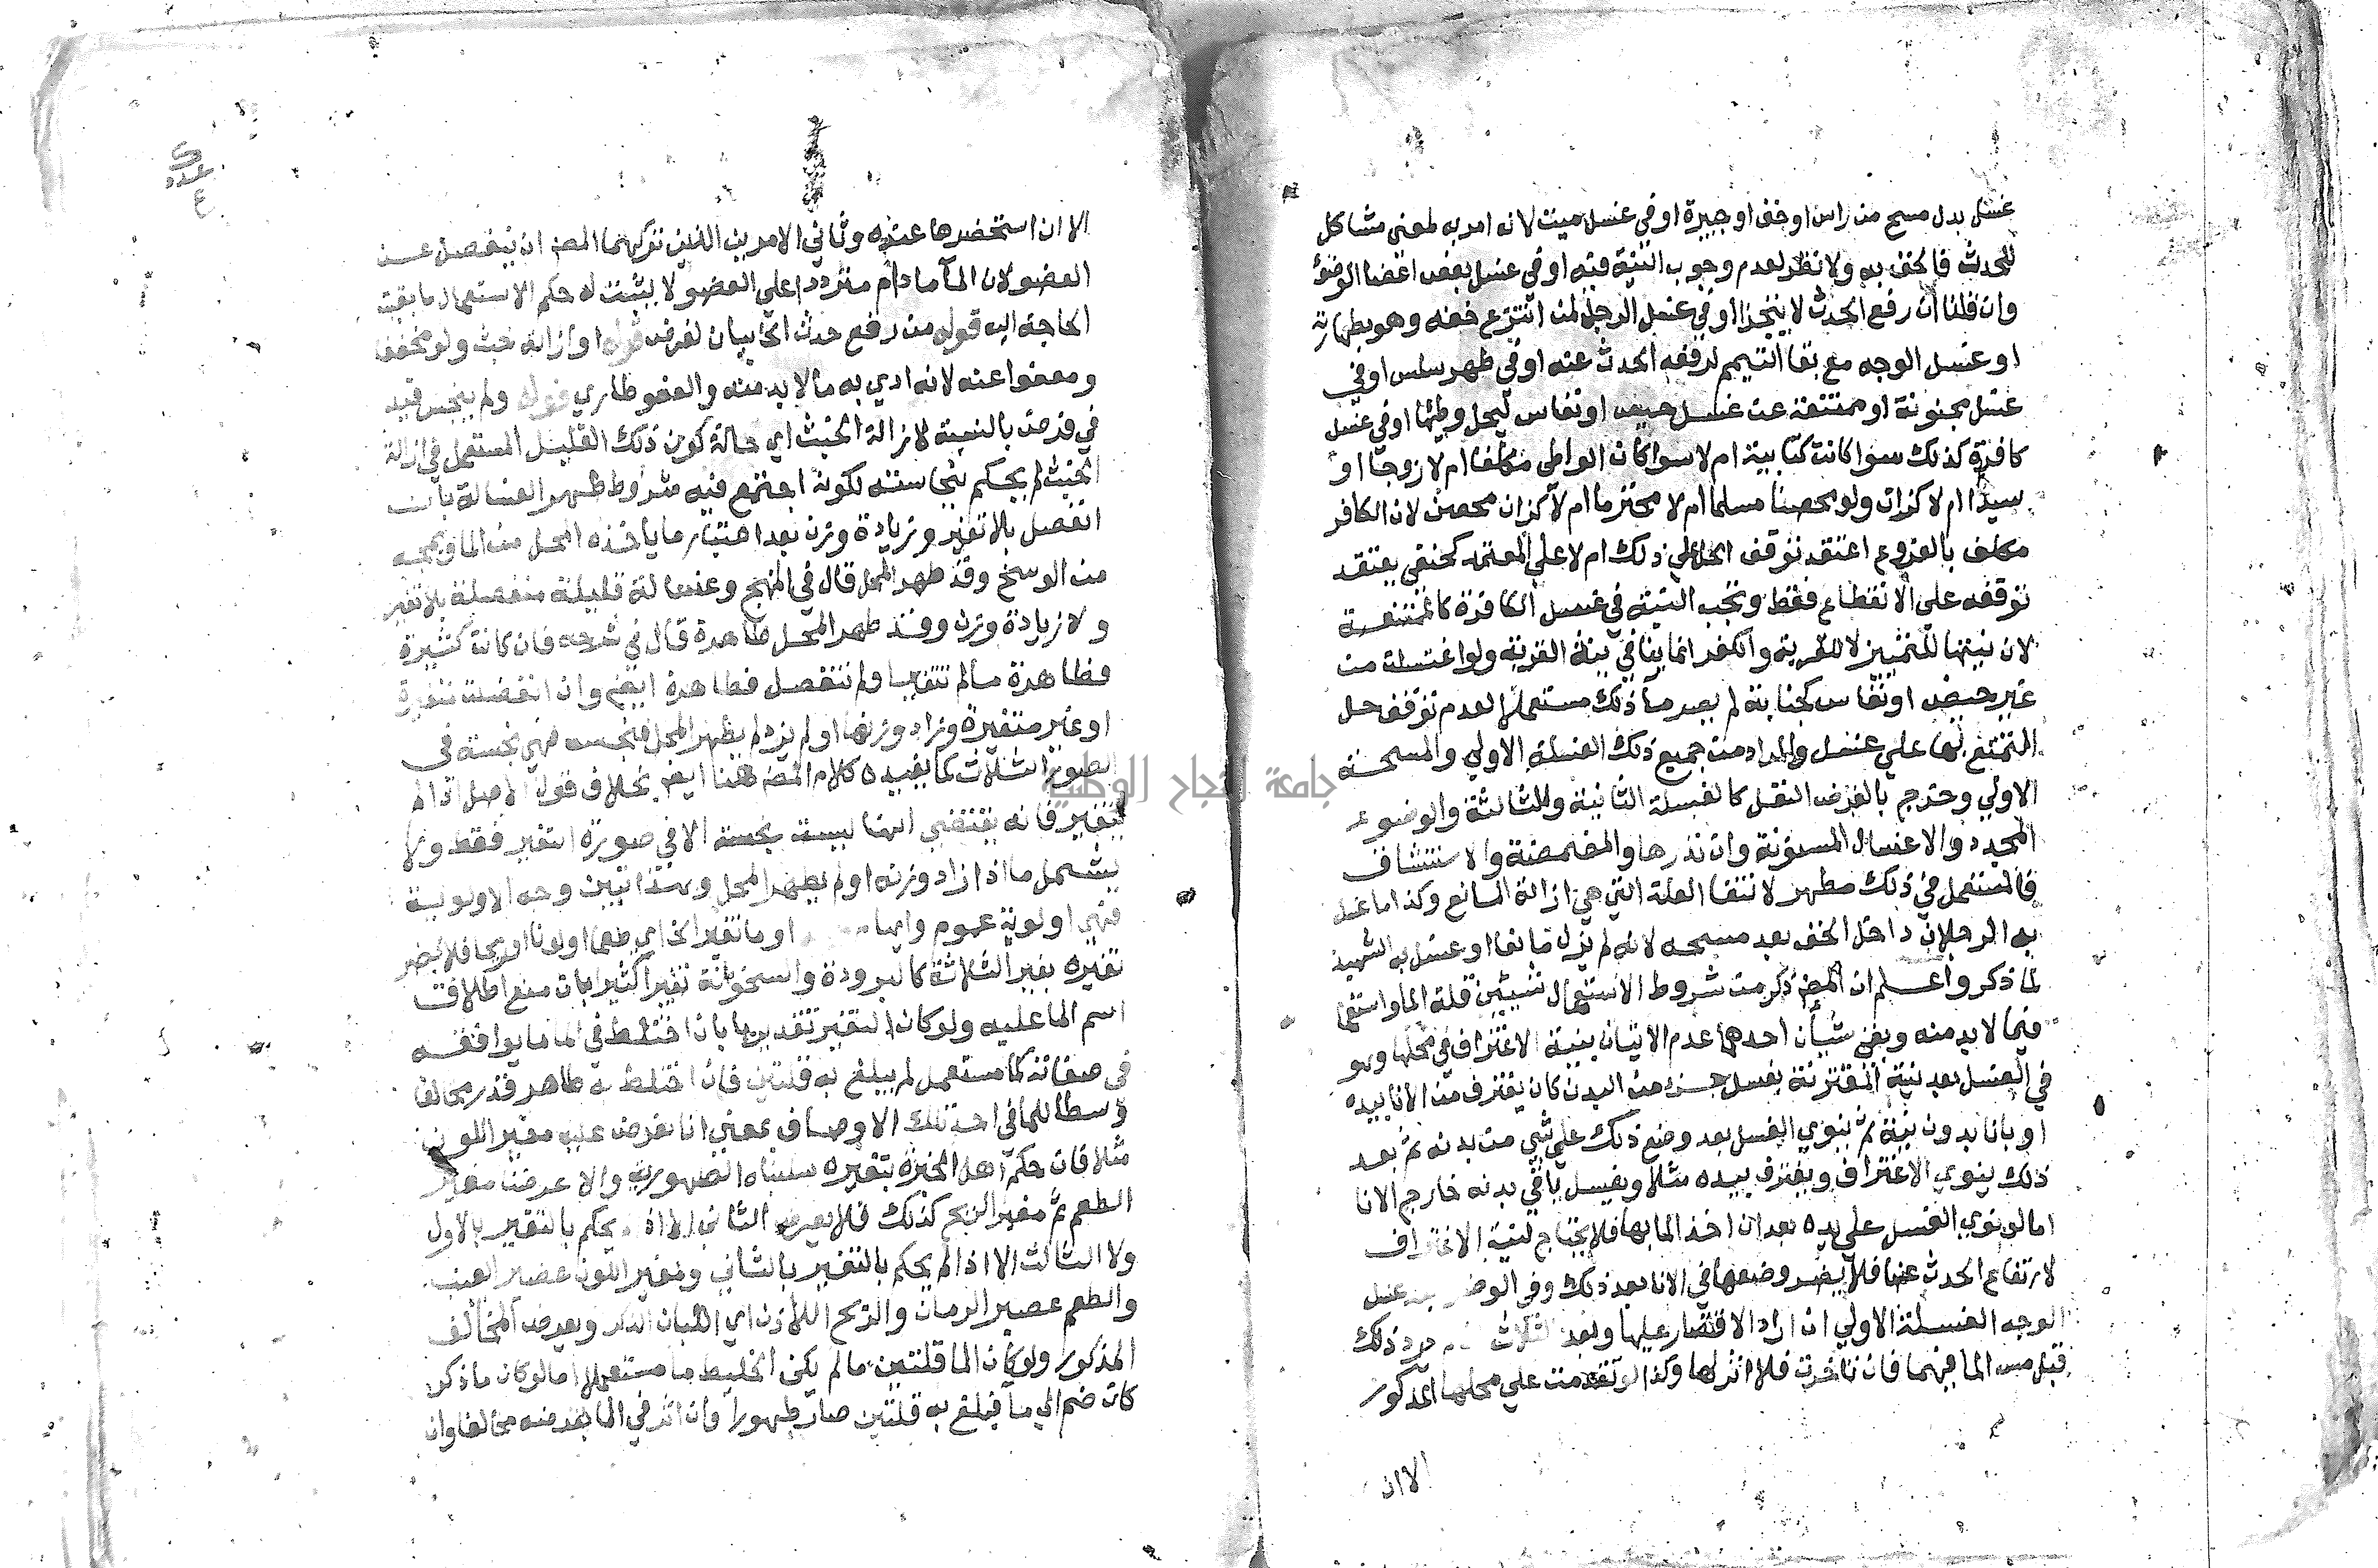 غسل بدل مسح من راس او خف او جبيرة او في غسل ميت لانه امر به لمعنى مشاكل
للحدث فالحق به ولا نظر لعدم وجوب النية فيه او في غسل بعض اعضا الوضوء
وان قلنا ان رفع الحدث لا يتجزا او في غسل الرجل لمن انتزع خفه وهو بطهارته
او غسل الوجه مع بقا التيمم لرفعه الحدث عنه او في طهر سلس او في
غسل مجنونة او ممتنعة عن غسل حيض او نفاس ليحل وطئها او في غسل
كافرة كذلك سوا كانت كتابية ام لا سوا كان الواطى مكلفا ام لا زوجا او
سيدا ام لا كزان ولو محصنا مسلما ام لا محترما ام لا كزان محصن لان الكافر
مكلف بالفروع اعتقد توقف الحل على ذلك ام لا على المعتمد كحنفي يعتقد
توقفه على الانقطاع فقط وتجب النية في غسل الكافرة كالممتنعة
لان نيتها للتمييز لا للقربة والكفر انما ينافي نية القربة ولو اغتسلت من
غير حيض او نفاس كجنابة لم يصر ما ذلك مستعملا لعدم توقف حل
التمتع بها على غسل والمراد من جميع ذلك الغسلة الاولي والمسحة
الاولي وخرج بالفرض النفل كالغسلة الثانية والثالثة والوضوء
المجدد والاغسال المسنونة وان نذرها والمضمضة والاستنشاق
فالمستعمل في ذلك مطهر لانتفا العلة التي هي ازالة المانع وكذا ما غسل
به الرجلان داخل الخف بعد مسحه لانه لم يزل مانعا او غسل به الشهيد
لما ذكر واعلم ان المص ذكر من شروط الاستعمال شيئين قلة الما واستعما
فيما لا بد منه وبقي شيأن احدهما عدم الاتيان بنية الاغتراف في محلها وهو
في الغسل بعد نية المقترنة بغسل جزء من البدن كان يغترف من الانا بيده
او بانا بدون نية ثم ينوي الغسل بعد وضع ذلك على شي من بدنه ثم بعد
ذلك ينوي الاغتراف ويغترف بيده مثلا ويغسل باقي بدنه خارج الانا
اما لو نوي الغسل على يده بعد ان اخذ الما بها فلا يحتاج لنية الاغتراف
لارتفاع الحدث عنها فلا يضر وضعها في الانا بعد ذلك وفي الوضو بعد غسل
الوجه الغسلة الاولي ان اراد الاقتصار عليها وبعد الثلاث ذلك
قبل مس الما فيهما فان تاخرت فلا اثر لها وكذا لو تقدمت على محلها المذكور
الا ان
عدد
٤
الا ان استحضرها عنده وثاني الامرين الذين تركهما المص ان ينفصل عن
العضو لان الما ما دام مترددا على العضو لا يثبت له حكم الاستعمال ما بقيت
الحاجة اليه قوله من رفع حدث الخ بيان لفرض قوله او ازالة خبث ولو مخففا
ومعفوا عنه لانه ادي به ما لا بد منه والعفو طاري قوله ولم ينجس قيد
في فرض بالنسبة لازالة الخبث اي حالة كون ذلك القليل المستعمل في ازالة
الخبث لم يحكم بنجاسته لكونه اجتمع فيه شروط طهر الغسالة بان
انفصل بلا تغير وزيادة وزن بعد اعتبار ما ياخذه المحل من الما ويمجه
من الوسخ وقد طهر المحل قال في المنهج وغسالة قليلة منفصلة بلا تغير
ولا زيادة وزن وقد طهر المحل طاهرة قال في شرحه فان كانت كثيرة
فطاهرة ما لم تتغير او لم تنفصل فطاهرة ايضا وان انفصلت متغيرة
او غير متغيرة وزاد وزنها او لم يزد لم يطهر المحل فنجسه فهي نجسة في
الصور الثلاث كما يفيده كلام المص هنا ايضا بخلاف قول الاصل اذا لم
يتغير فانه يقتضي انها ليست بنجسة الا في صورة التغير فقط ولا
يشمل ما اذا زاد وزنه او لم يطهر المحل وبهذا تبين وجه الاولوية
فهي اولوية عموم وايها او ما تغير الخ اي طعما او لونا او ريحا فلا يضر
تغيره بغير الثلاثة كالبرودة والسخونة تغيرا كثيرا بان منع اطلاق
اسم الما عليه ولو كان التغير تقديريا بان اختلط في الما ما يوافقه
في صفاته كما مستعمل لم يبلغ به قلتين فان اختلط به طاهر قدر مخالفا
وسطا للما في احد تلك الاوصاف بمعنى انا نعرض عليه مغير اللون
مثلا فان حكم اهل الخبرة بتغيره سلبناه الطهورية والا عرضنا مغير
الطعم ثم مغير الريح كذلك فلا يعرض الثاني الا اذا يحكم بالتغير بالاول
ولا الثالث الا اذا لم يحكم بالتغير بالثاني ومغير اللون عصير العنب
والطعم عصير الرمان والريح اللاذن اي اللبان الذكر ويعرض المخالف
المذكور ولو كان الما قلتين ما لم يكن الخليط ما مستعملا اما لو كان ما ذكر
كان ضم الي ما فبلغ به قلتين صار طهورا وان اثر في الما بفرضه مخالفا وان
جامعة النجاح الوطنية